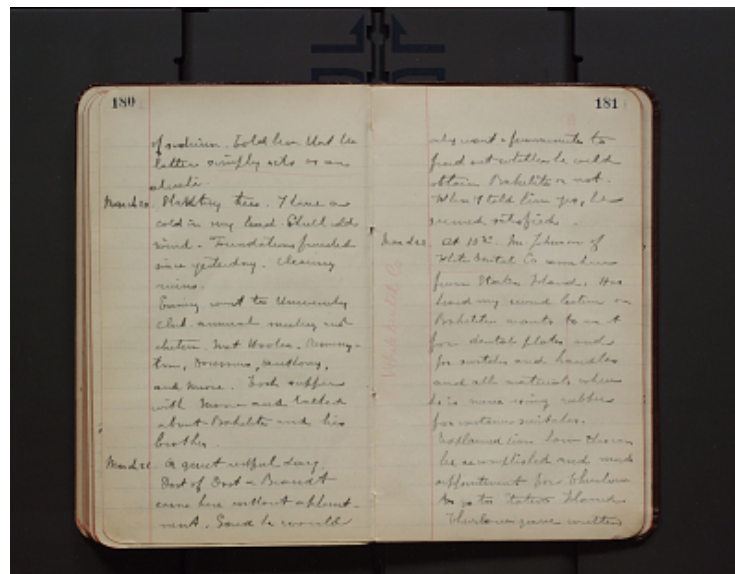 180
of sodium. Told him that the
latter simply acts as an
March 20. Planting trees. I have a
cold in my head. Still cold
wind. Foundations finished
since yesterday. Cleaning
ruins.
Evening went to University
club annual meeting and
election. Met
and Moore. Took supper
with Moore and talked
about Bakelite and his
brother.
March 21. A quiet restful day.
Dost of Dost & Brandt
came here without appoint-
ment. Said he would
181
only want a few minutes to
find out whether he could
obtain Bakelite or not.
When I told him yes, he
seemed satisfied.
March 22. At 10 30 Mr. Johnson of
White Dental Co came here
from Staten Island. Has
heard my recent lecture on
Bakelite wants to use it
for dental plates and
for switches and handles
and all materials where
he is now using rubber
for
Explained him how this can
be accomplished and made
appointment for Thurlow
to go to Staten Island
Thurlow gave written